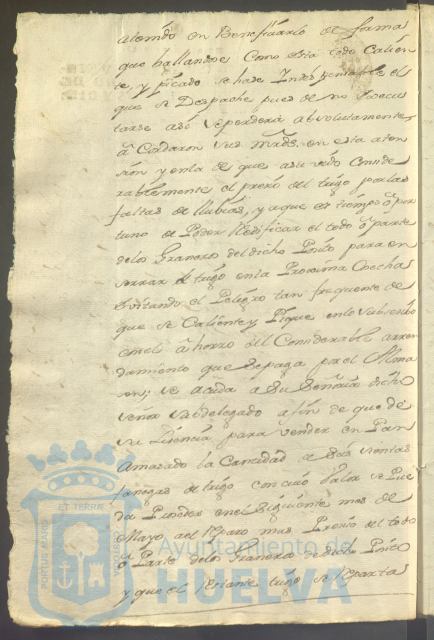 atenido en Beneficiarlo de forma
que hallandose Como esta todo Calien
te, y picado se hase Indispensable el
que se Despache pues de no executarse
tarse asi se perdera absolutamente,
Acordaron sus mrds. en esta aten
sion y en la de que a subido Conside
rablemente el presio del trigo por las
faltas de llubias, y a que es tiempo opor
tuno de Poder Redificar el todo o parte
de los Graneros del dicho Posito para en
serrar el trigo en la Proxima Cosecha
Evitando el Peligro tan frequente de
que se Caliente, y Pique en lo subsesibo
con el ahorro del Considerable arren
damiento que se paga por el Alma
sen; se acuda a Su Señoria dicho
señor subdelegado a fin de que dé
su Lisencia para vender en Pan
Amasado la Cantidad de
fanegas de trigo con cuio se Pue
da Proceder en el siguiente mes de
Mayo al Reparo mas Presio del todo
o Parte de los Graneros de dicho Posito
y que el restante trigo se Reparta
PORTUS MARIS
ET TERRÆ
CUSTODIA
Ayuntamiento de
HUELVA